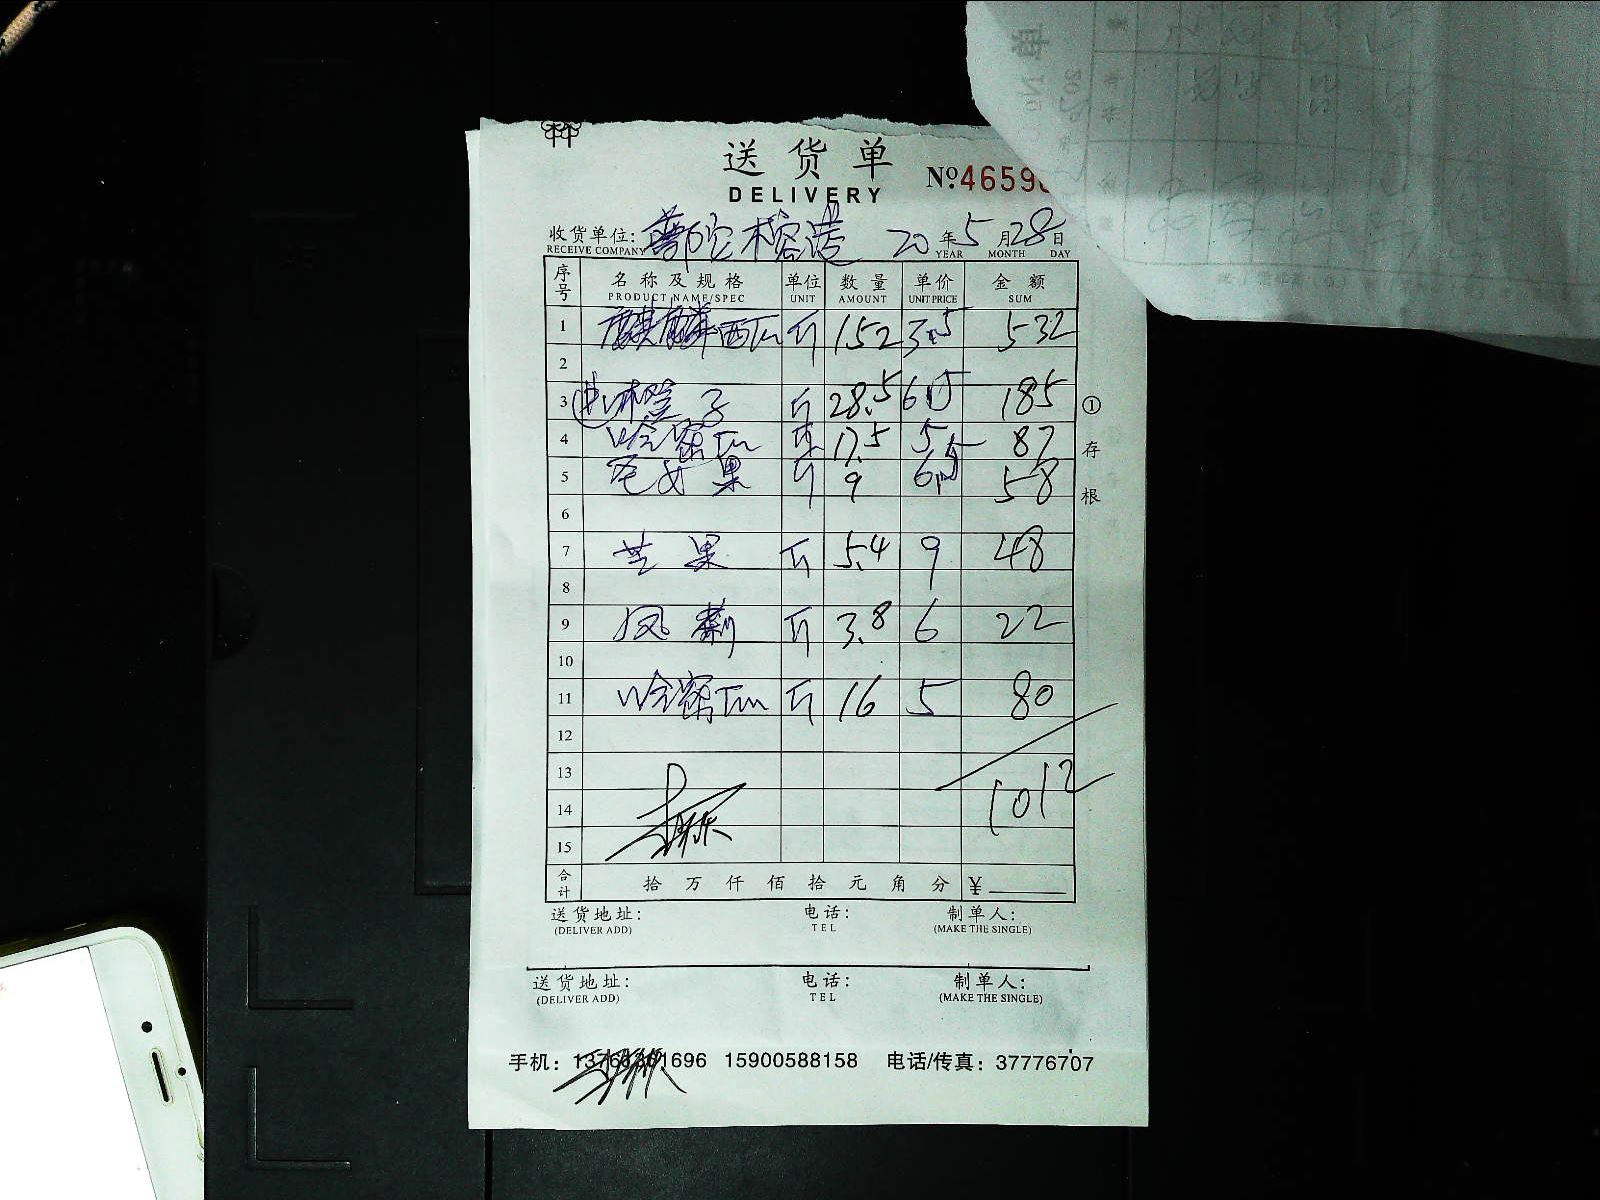 送货单
DELIVERY
No.4659
收货单位: 普陀 20 年 5 月 28 日
RECEIVE COMPANY YEAR MONTH DAY
序号 名称及规格 单位 数量 单价 金额
PRODUCT NAME/SPEC UNIT AMOUNT UNIT PRICE SUM
1 麒麟西瓜 斤 152 3.5 532
2
3 橙子 斤 28.5 6.5 185
4 哈密瓜 斤 17.5 5 87
5 果 斤 9 6.5 58
6
7 芒果 斤 5.4 9 48
8
9 凤梨 斤 3.8 6 22
10
11 哈密瓜 斤 16 5 80
12
13
14 1012
15
合计 拾万仟佰拾元角分 ¥
①存根
送货地址: 电话: 制单人:
(DELIVER ADD) TEL (MAKE THE SINGLE)
送货地址: 电话: 制单人:
(DELIVER ADD) TEL (MAKE THE SINGLE)
手机: 1696 15900588158 电话/传真: 37776707